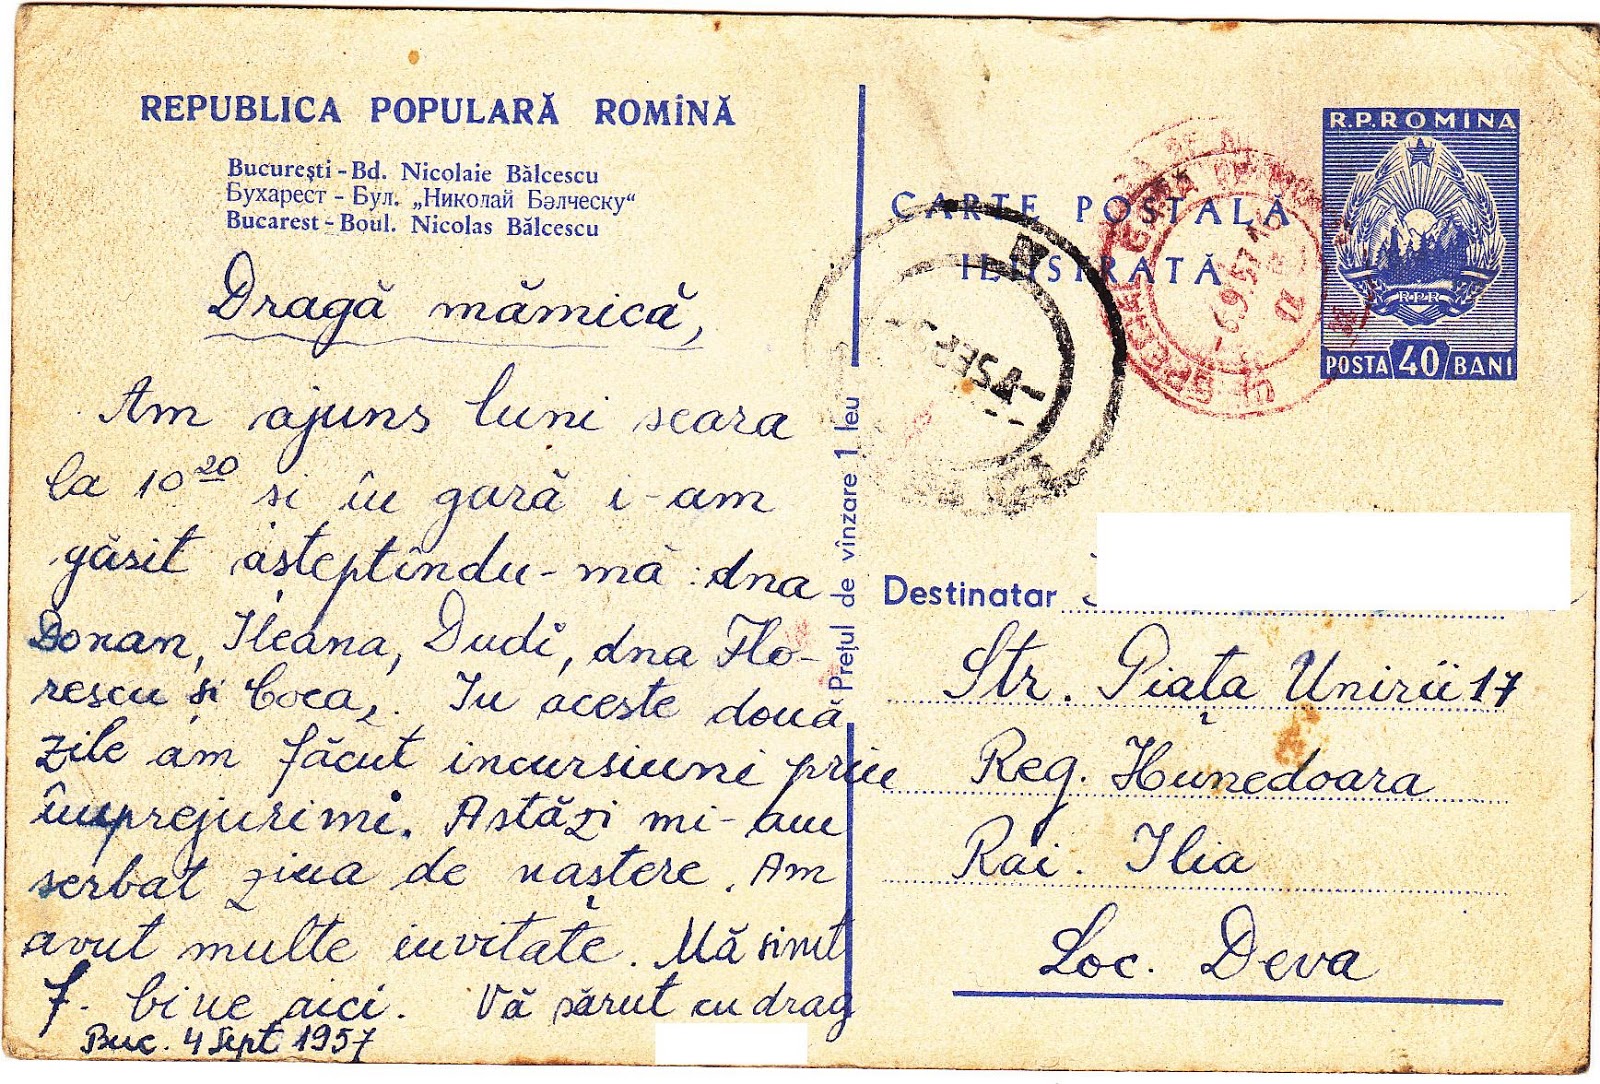 REPUBLICA POPULARĂ ROMÎNĂ
București - Bd. Nicolaie Bălcescu
Бухарест - Бул. „Николай Бэлческу“
Bucarest - Boul. Nicolas Bălcescu
Dragă mămică,
Am ajuns luni seara
la 10²⁰ si în gară i-am
găsit așteptîndu-mă : dna
Donan, Ileana, Dudi, dna Flo-
rescu și Coca,. In aceste două
zile am făcut incursiuni prin
împrejurimi. Astăzi mi-am
serbat ziua de naștere. Am
avut multe invitate. Mă simt
f. bine aici. Vă sărut cu drag
Buc. 4 Sept 1957
Prețul de vînzare 1 leu
CARTE POȘTALĂ
ILUSTRATĂ
R.P.ROMÎNĂ
R.P.R
POSTA 40 BANI
-4 SEP
-6.9.57
Destinatar
Str. Piața Unirii 17
Reg. Hunedoara
Rai. Ilia
Loc. Deva